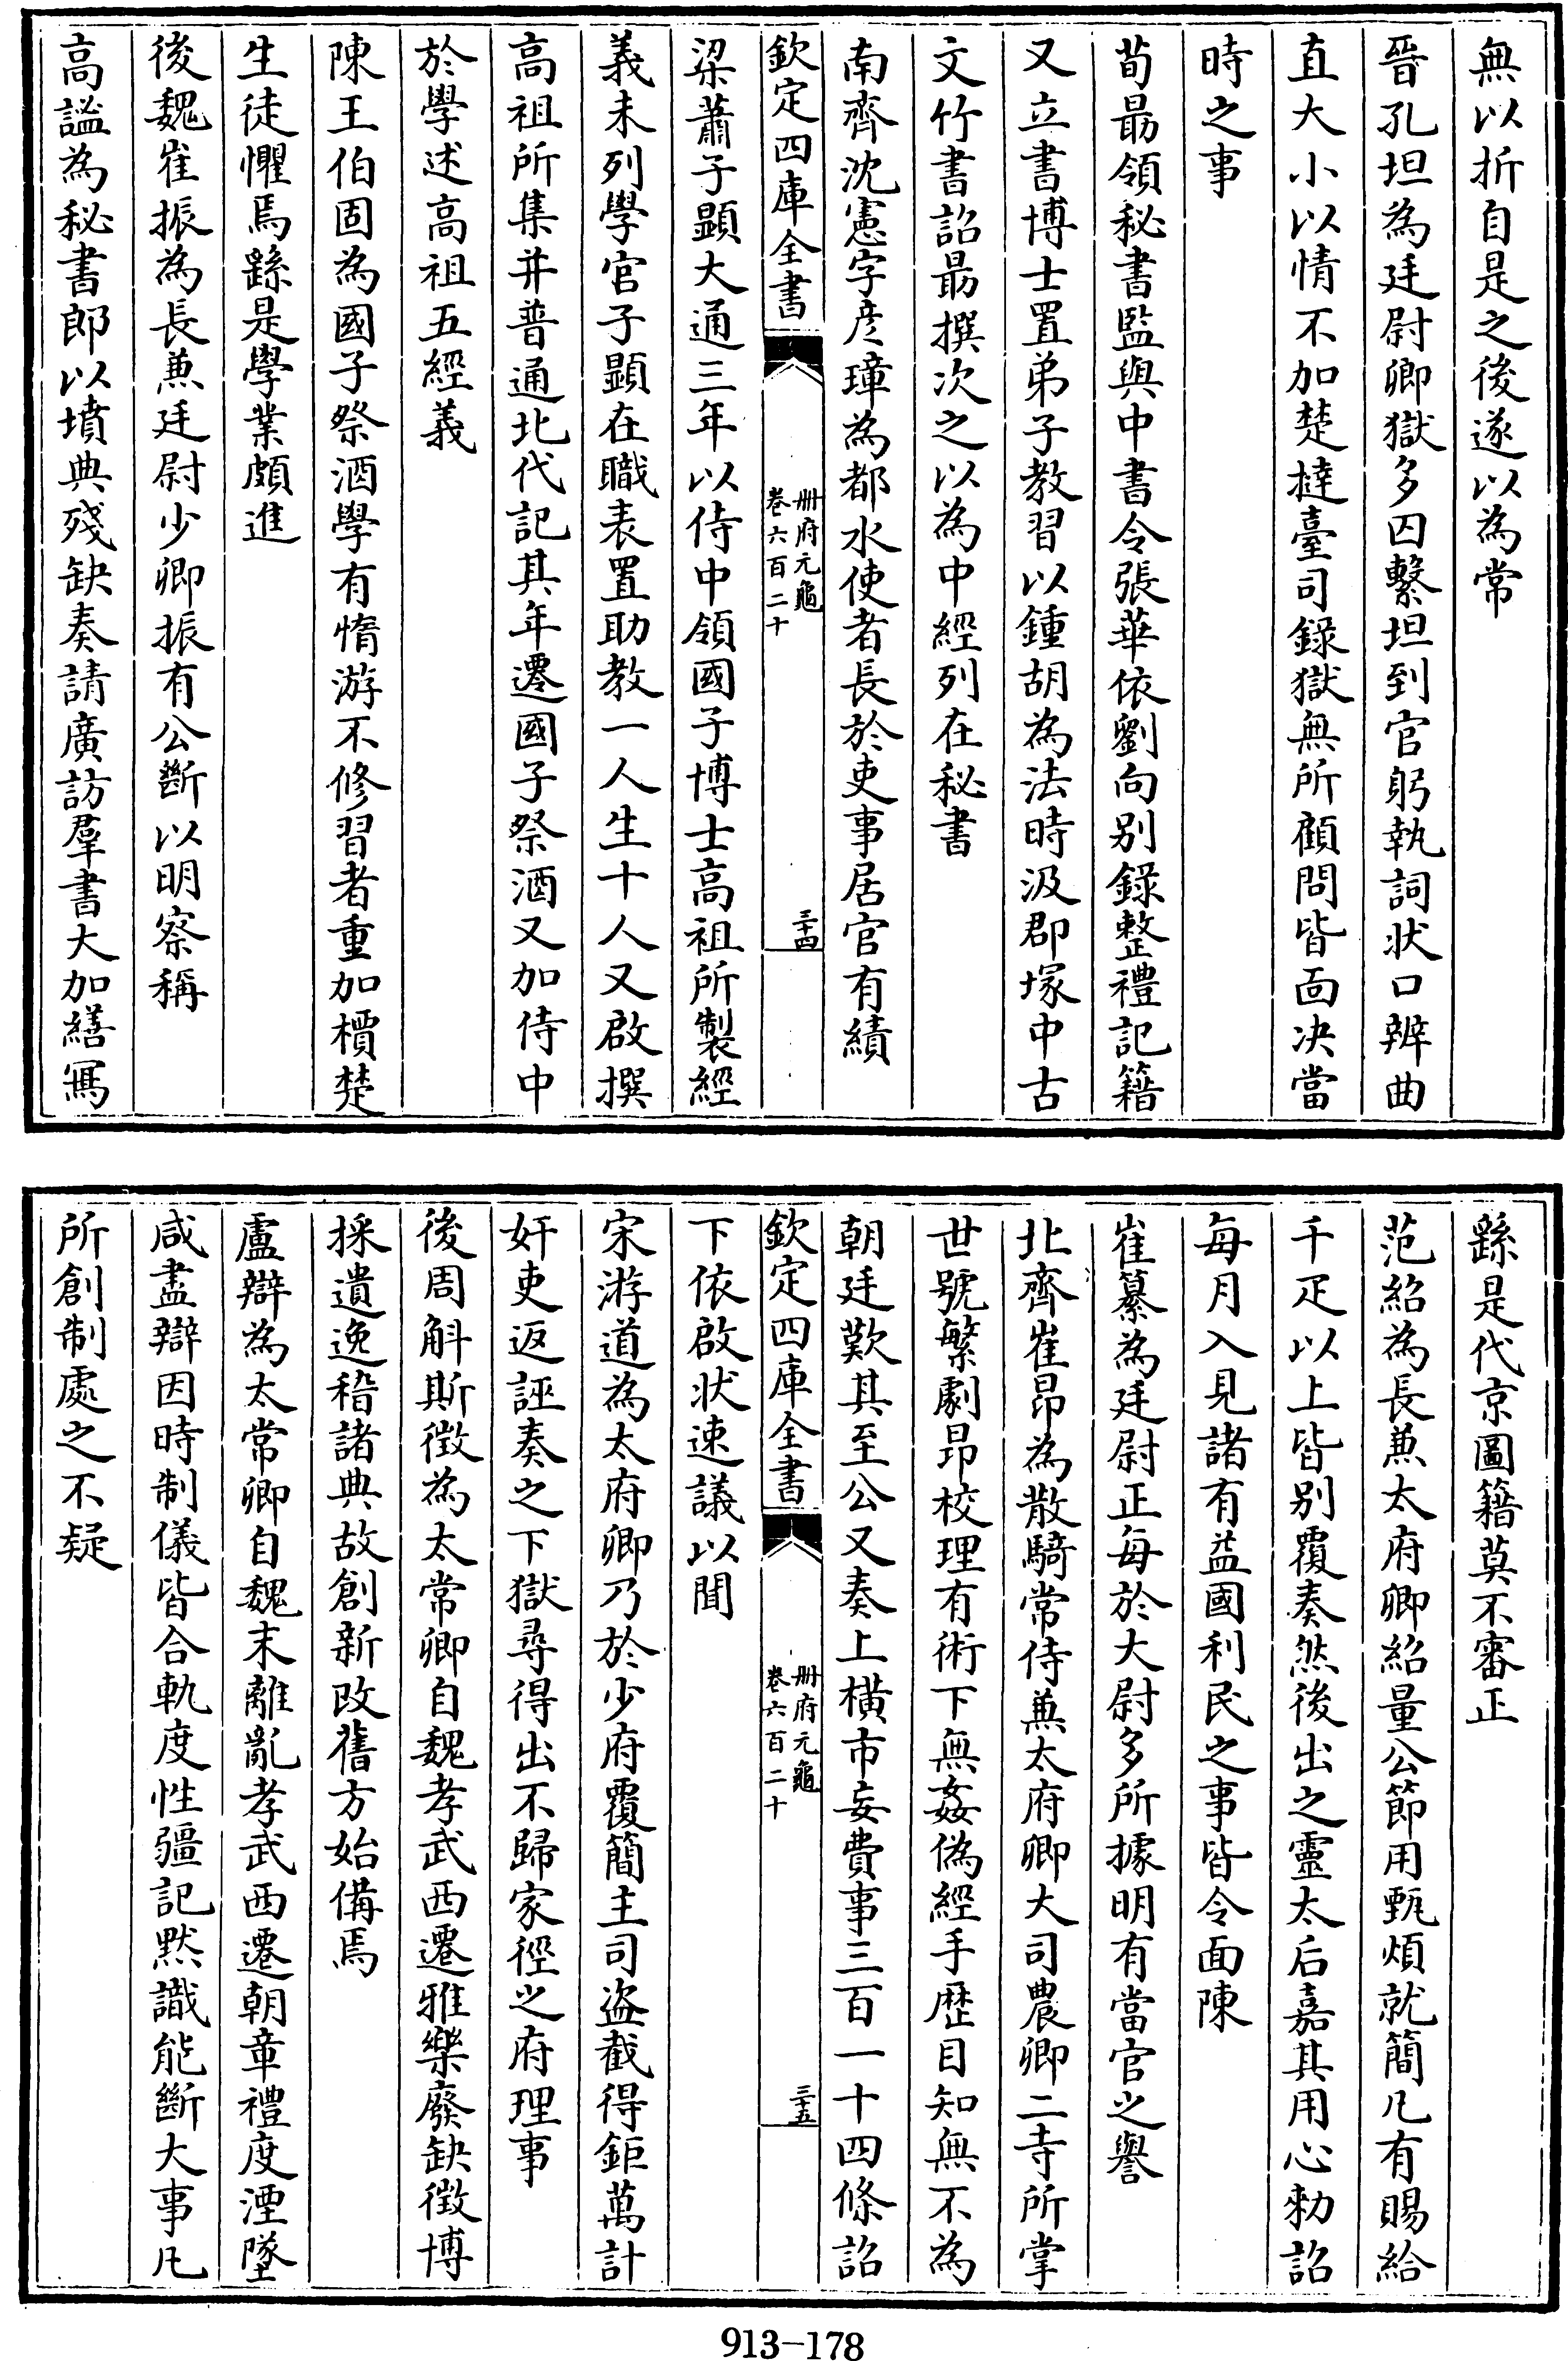 無以折自是之後遂以為常
晉孔坦為廷尉卿獄多囚繫坦到官躬執詞狀口辨曲
直大小以情不加楚撻臺司錄獄無所顧問皆面決當
時之事
荀勗領秘書監與中書令張華依劉向別錄整禮記籍
又立書博士置弟子教習以鍾胡為法時汲郡塚中古
文竹書詔勗撰次之以為中經列在秘書
南齊沈憲字彦璋為都水使者長於吏事居官有績
欽定四庫全書
冊府元龜
卷六百二十
三十四
梁蕭子顯大通三年以侍中領國子博士高祖所製經
義未列學官子顯在職表置助教一人生十人又啟撰
高祖所集并普通北代記其年遷國子祭酒又加侍中
於學述高祖五經義
陳王伯固為國子祭酒學有惰游不修習者重加檟楚
生徒懼焉繇是學業頗進
後魏崔振為長兼廷尉少卿振有公斷以明察稱
高謐為秘書郎以墳典殘缺奏請廣訪羣書大加繕寫
繇是代京圖籍莫不審正
范紹為長兼太府卿紹量公節用甄煩就簡凡有賜給
千疋以上皆別覆奏然後出之靈太后嘉其用心勑詔
每月入見諸有益國利民之事皆令面陳
崔纂為廷尉正每於大尉多所據明有當官之譽
北齊崔昂為散騎常侍兼太府卿大司農卿二寺所掌
世號繁劇昂校理有術下無姦偽經手歷目知無不為
朝廷歎其至公又奏上橫市妄費事三百一十四條詔
欽定四庫全書
冊府元龜
卷六百二十
三十五
下依啟狀速議以聞
宋游道為太府卿乃於少府覆簡主司盜截得鉅萬計
奸吏返誣奏之下獄尋得出不歸家徑之府理事
後周斛斯徵為太常卿自魏孝武西遷雅樂廢缺徵博
採遺逸稽諸典故創新改舊方始備焉
盧辯為太常卿自魏末離亂孝武西遷朝章禮度湮墜
咸盡辯因時制儀皆合軌度性彊記默識能斷大事凡
所創制處之不疑
913-178